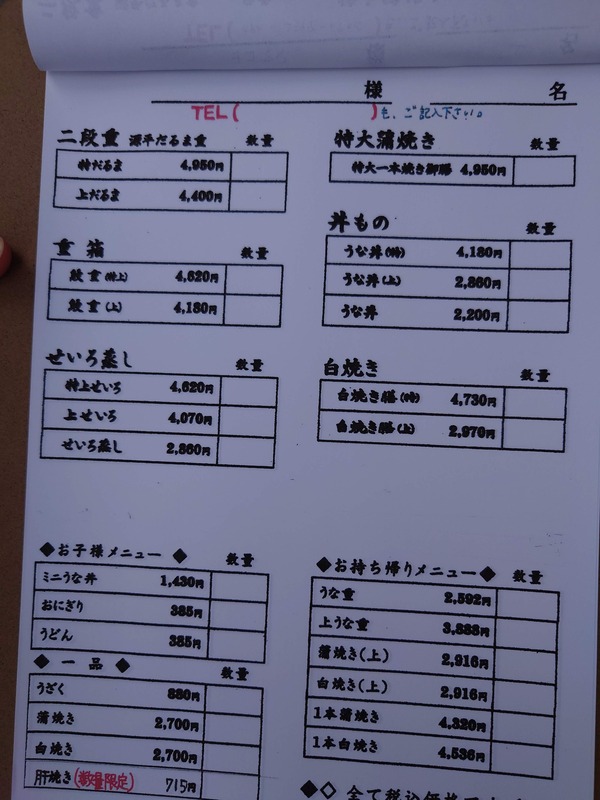 様 名
TEL( )も、ご記入下さい。
二段重 源平だるま重 数量
特だるま 4,950円
上だるま 4,400円
重箱 数量
鰻重(特上) 4,620円
鰻重(上) 4,180円
せいろ蒸し 数量
特上せいろ 4,620円
上せいろ 4,070円
せいろ蒸し 2,860円
特大蒲焼き 数量
特大一本焼き御膳 4,950円
丼もの 数量
うな丼(特) 4,180円
うな丼(上) 2,860円
うな丼 2,200円
白焼き 数量
白焼き膳(特) 4,730円
白焼き膳(上) 2,970円
◆お子様メニュー◆ 数量
ミニうな丼 1,430円
おにぎり 385円
うどん 385円
◆一品◆ 数量
うざく 880円
蒲焼き 2,700円
白焼き 2,700円
肝焼き(数量限定) 715円
◆お持ち帰りメニュー◆ 数量
うな重 2,592円
上うな重 3,888円
蒲焼き(上) 2,916円
白焼き(上) 2,916円
1本蒲焼き 4,320円
1本白焼き 4,536円
◆◇全て税込価格